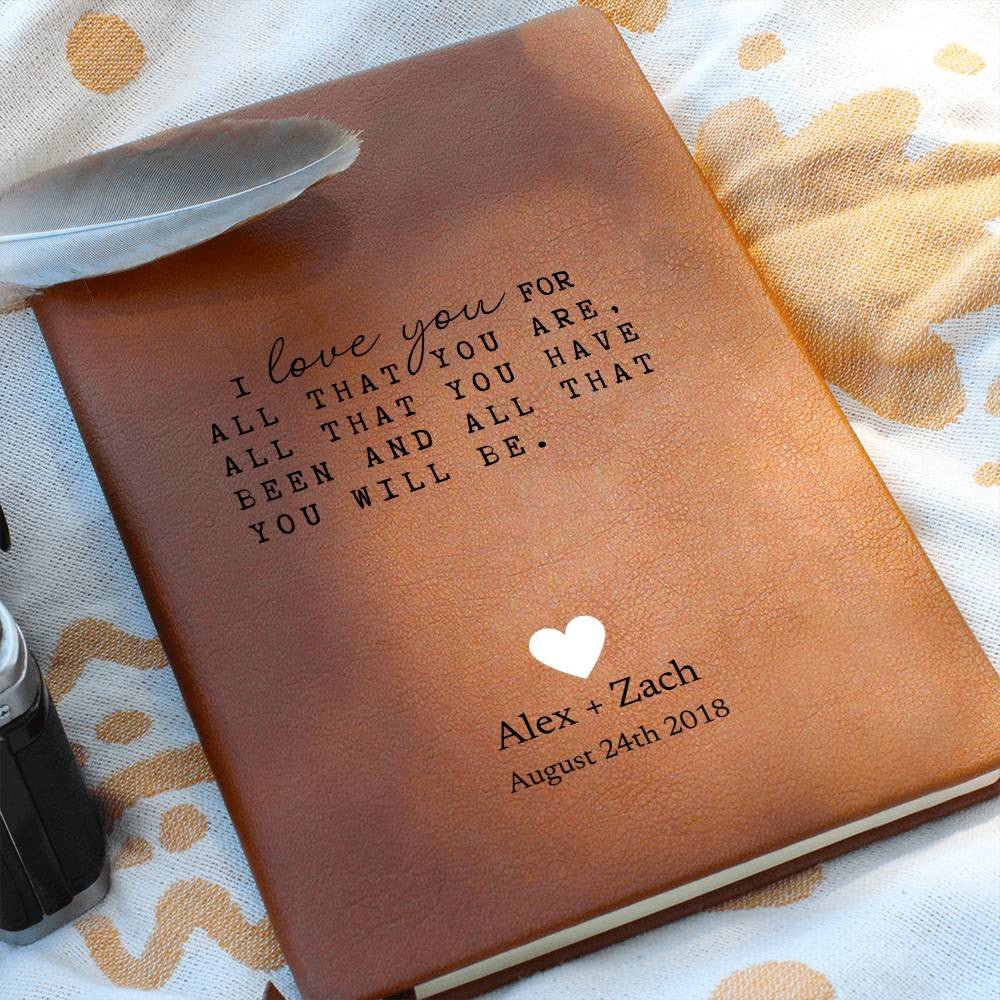 I love you FOR
ALL THAT YOU ARE,
ALL THAT YOU HAVE
BEEN AND ALL THAT
YOU WILL BE.
Alex + Zach
August 24th 2018